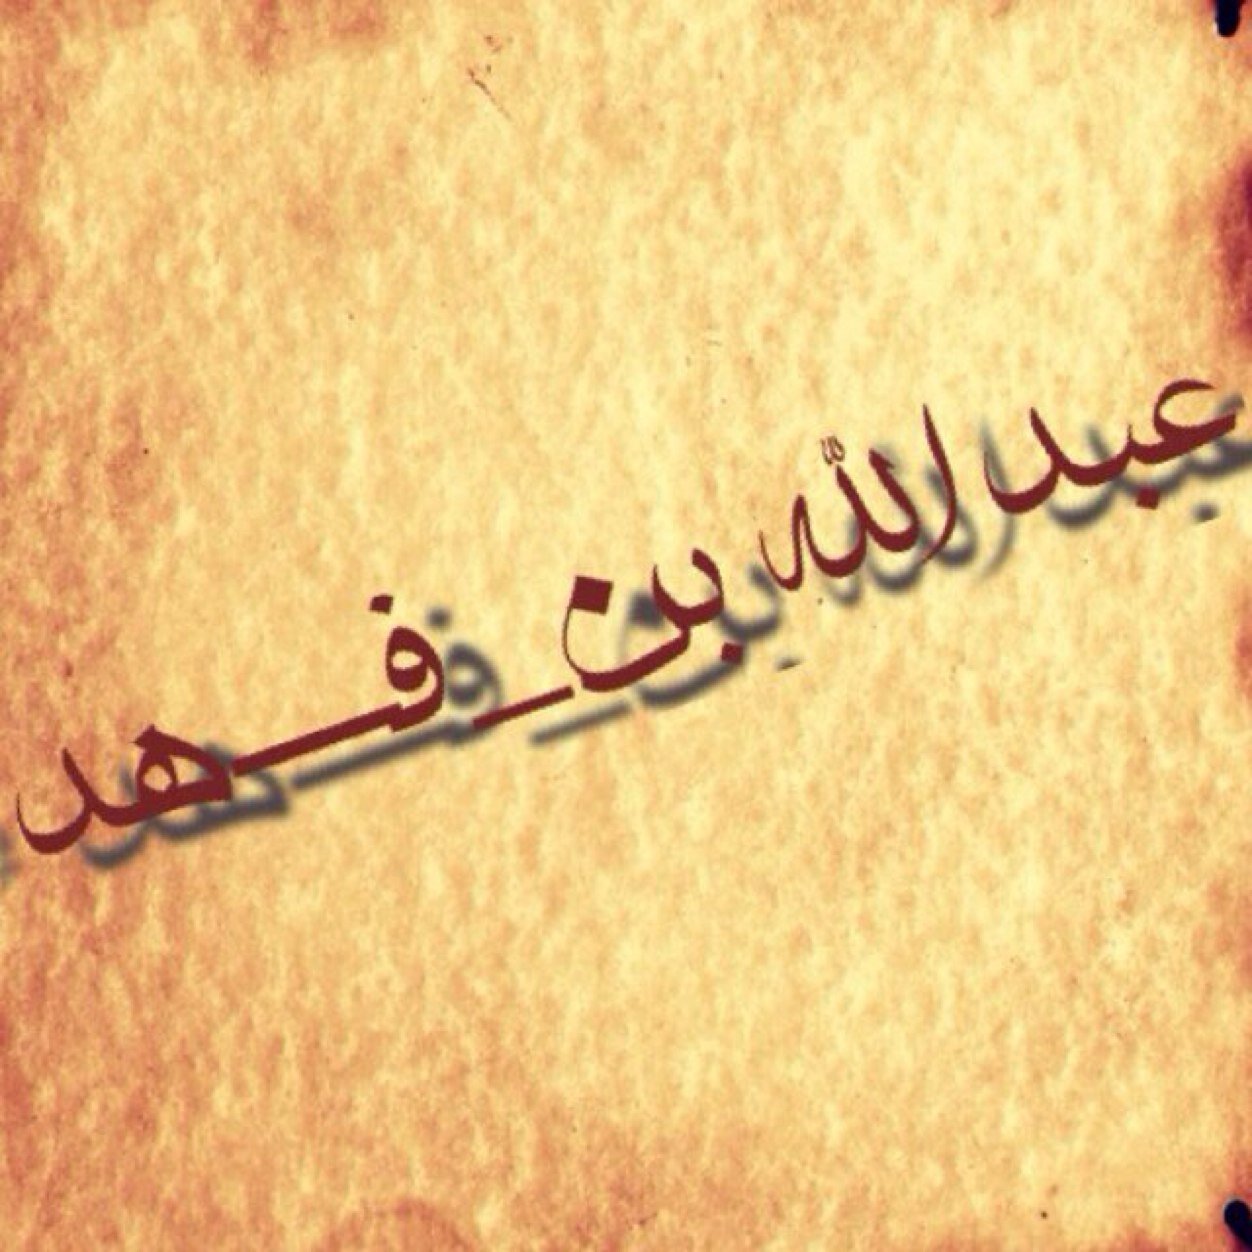 عبدالله بن_فــهد